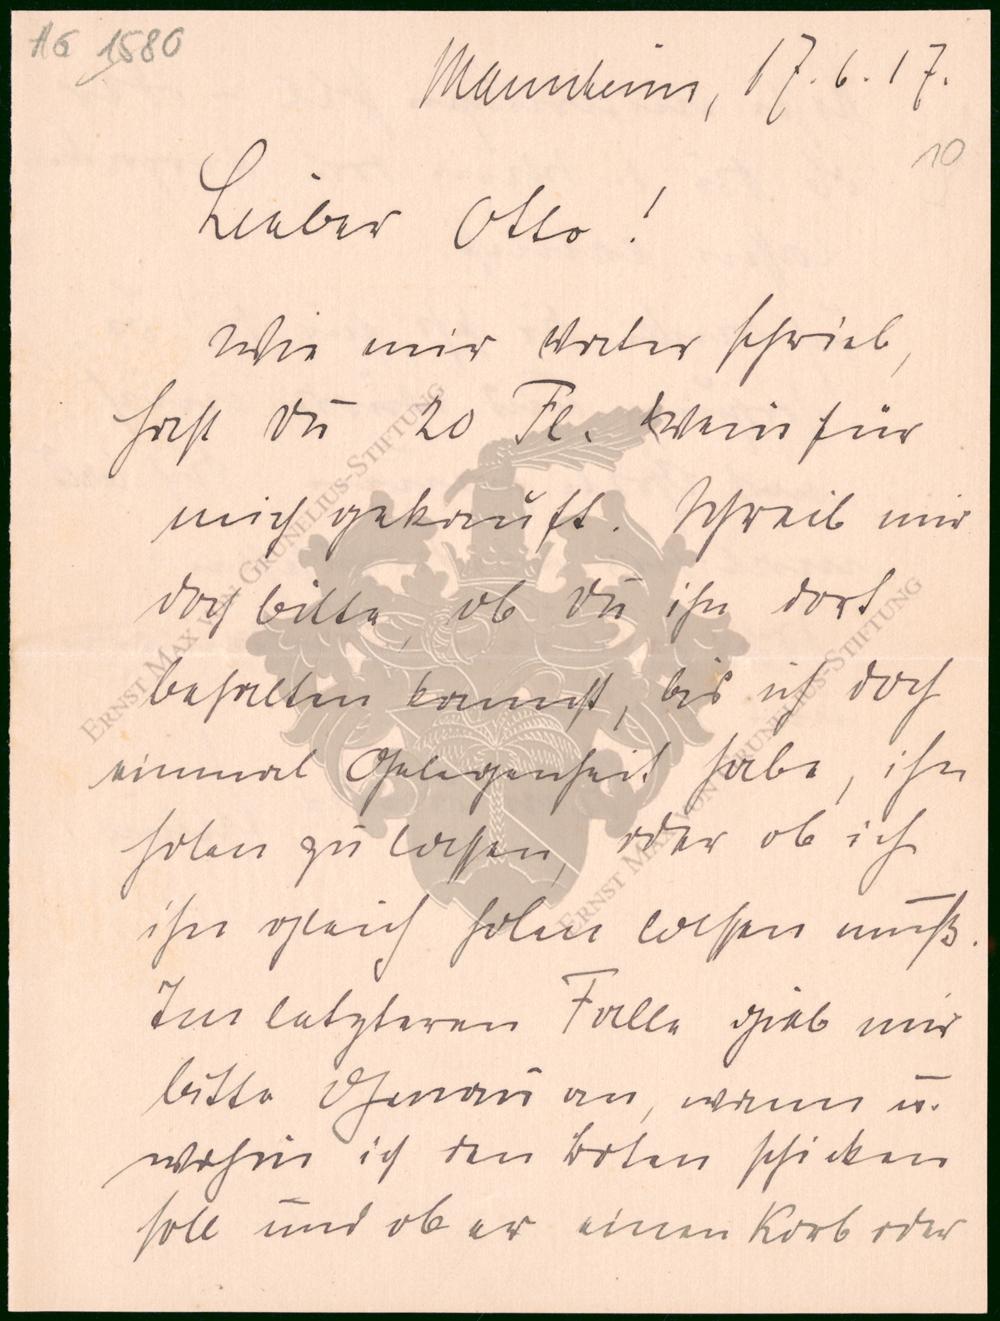 AG 1580
Mannheim, 17. 6. 17.
10
Lieber Otto!
Wie mir Vater schrieb,
hast Du 20 Fl. Wein für
mich gekauft. Schreib mir
doch bitte, ob Du ihn dort
behalten kannst, bis ich doch
einmal Gelegenheit habe, ihn
holen zu lassen, oder ob ich
ihn gleich holen lassen muß.
Im letzteren Falle gieb mir
bitte genau an, wann u.
wohin ich den Boten schicken
soll und ob er einen Korb oder
ERNST MAX VON GRUNELIUS-STIFTUNG
ERNST MAX VON GRUNELIUS-STIFTUNG